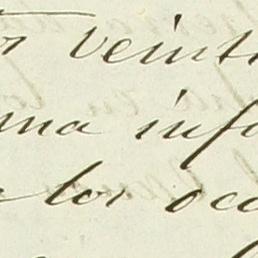 veint
ma info
los oca